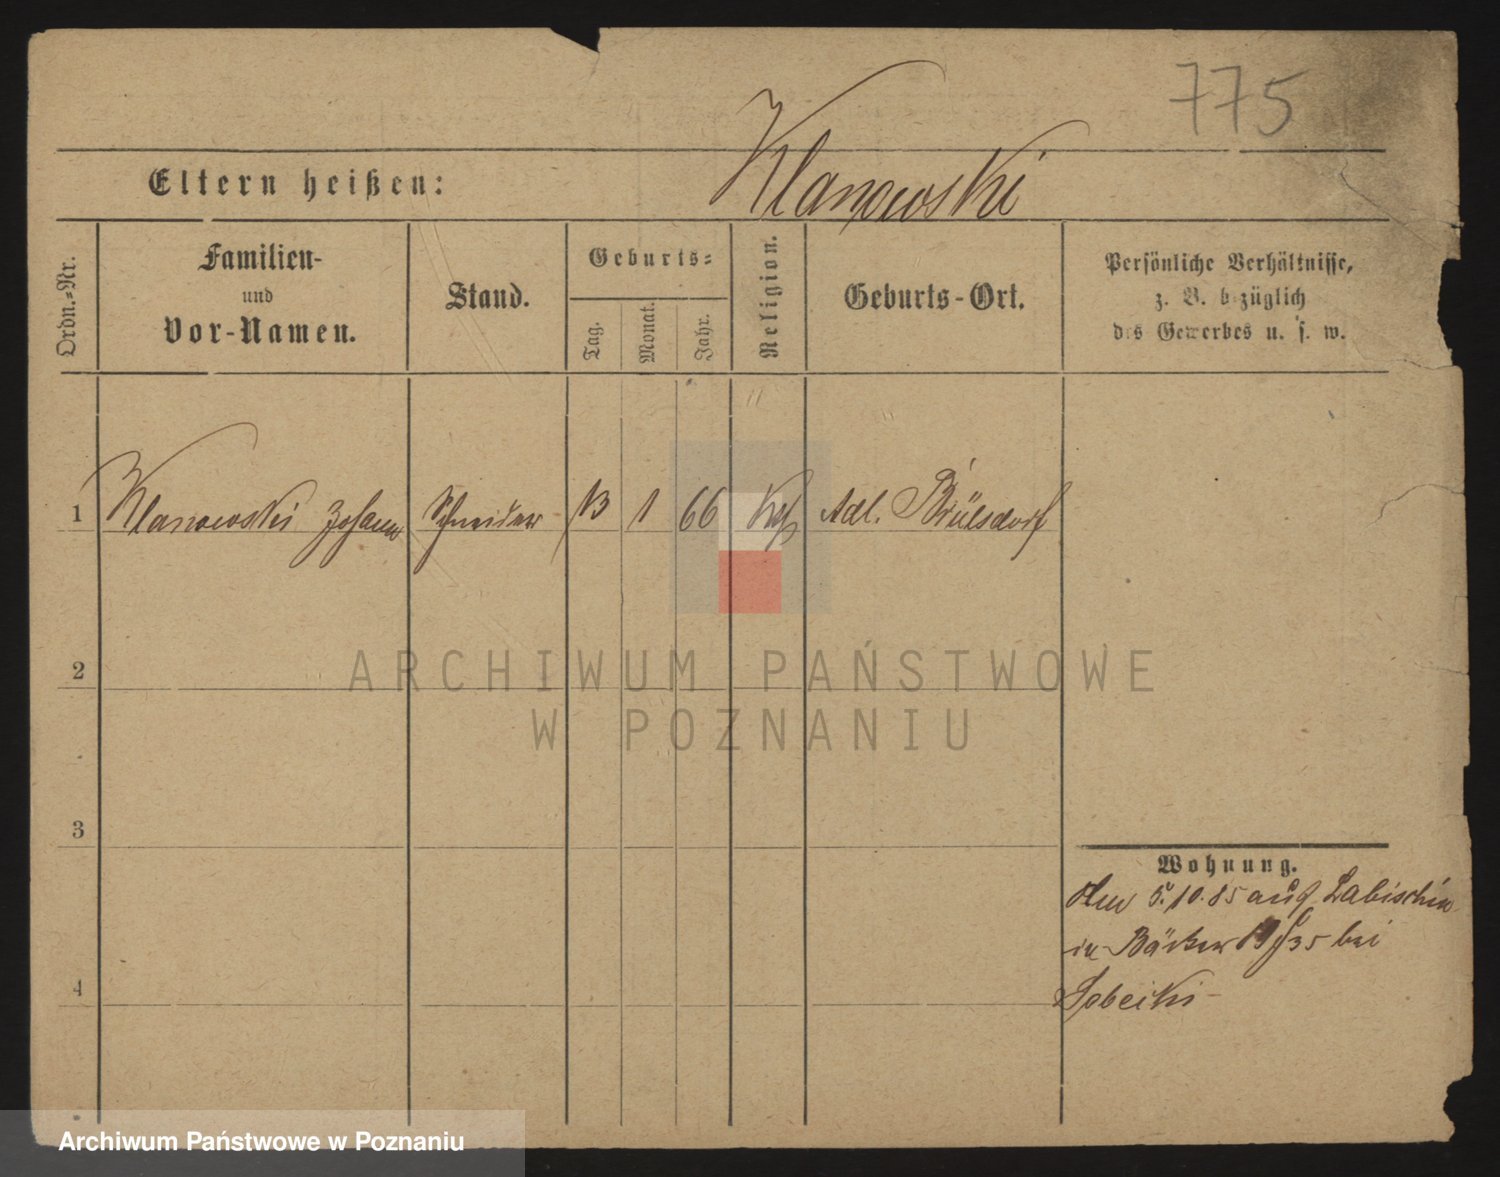 775
Klanowski
Eltern heißen:
Ordn.-Nr.
Familien-
und
Vor-Namen.
Stand.
Geburts-
Tag.
Monat.
Jahr.
Religion.
Geburts-Ort.
Persönliche Verhältnisse,
z. B. bezüglich
des Gewerbes u. s. w.
1 Klanowski Johann Schneider 13 1 66 Kath Adl. Brülsdorf
2
3
4
Wohnung.
5.10.85 aus Labischin
in Bäcker 19/35 bei
Sobecki
ARCHIWUM PAŃSTWOWE
W POZNANIU
Archiwum Państwowe w Poznaniu